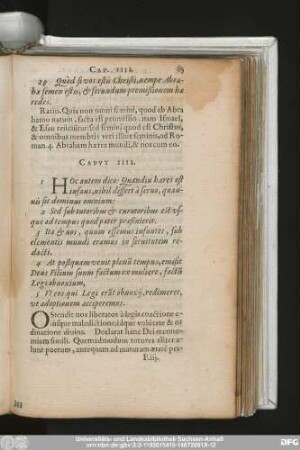 CAP. IIII. 65
29 Quòd si vos estis Christi, nempe Abra-
hæ semen estis, & secundum promissionem hæ
redes.
Ratio. Quia non omni semini, quod ab Abra
hamo natum, facta est promissio. nam Ismael,
& Esau reiiciuntur sed semini quod est Christus,
& omnibus membris veri illius seminis, ad Ro-
man. 4. Abraham hæres mundi, & nos cum eo.
CAPVT IIII.
1 HOc autem dico: Quandiu hæres est
infans, nihil differt à seruo, quam-
uis sit dominus omnium:
2 Sed sub tutoribus & curatoribus est vs-
que ad tempus quod pater præfinierat.
3 Ita & nos, quum essemus infantes, sub
elementis mundi eramus in seruitutem re-
dacti.
4 At postquam venit plenū tempus, emisit
Deus Filium suum factum ex muliere, factū
Legi obnoxium,
5 Vt eos qui Legi erāt obnoxij, redimeret,
vt adoptionem acciperemus.
OStendit nos liberatos à legis coactione e-
iusque maledictione, idque voluntate & or
dinatione diuina. Declarat hanc Dei œconom-
iam simili. Quemadmodum tutores alter a-
lunt puerum, antequam ad maturam ætatē per-
E.iij.
Universitäts- und Landesbibliothek Sachsen-Anhalt
DFG